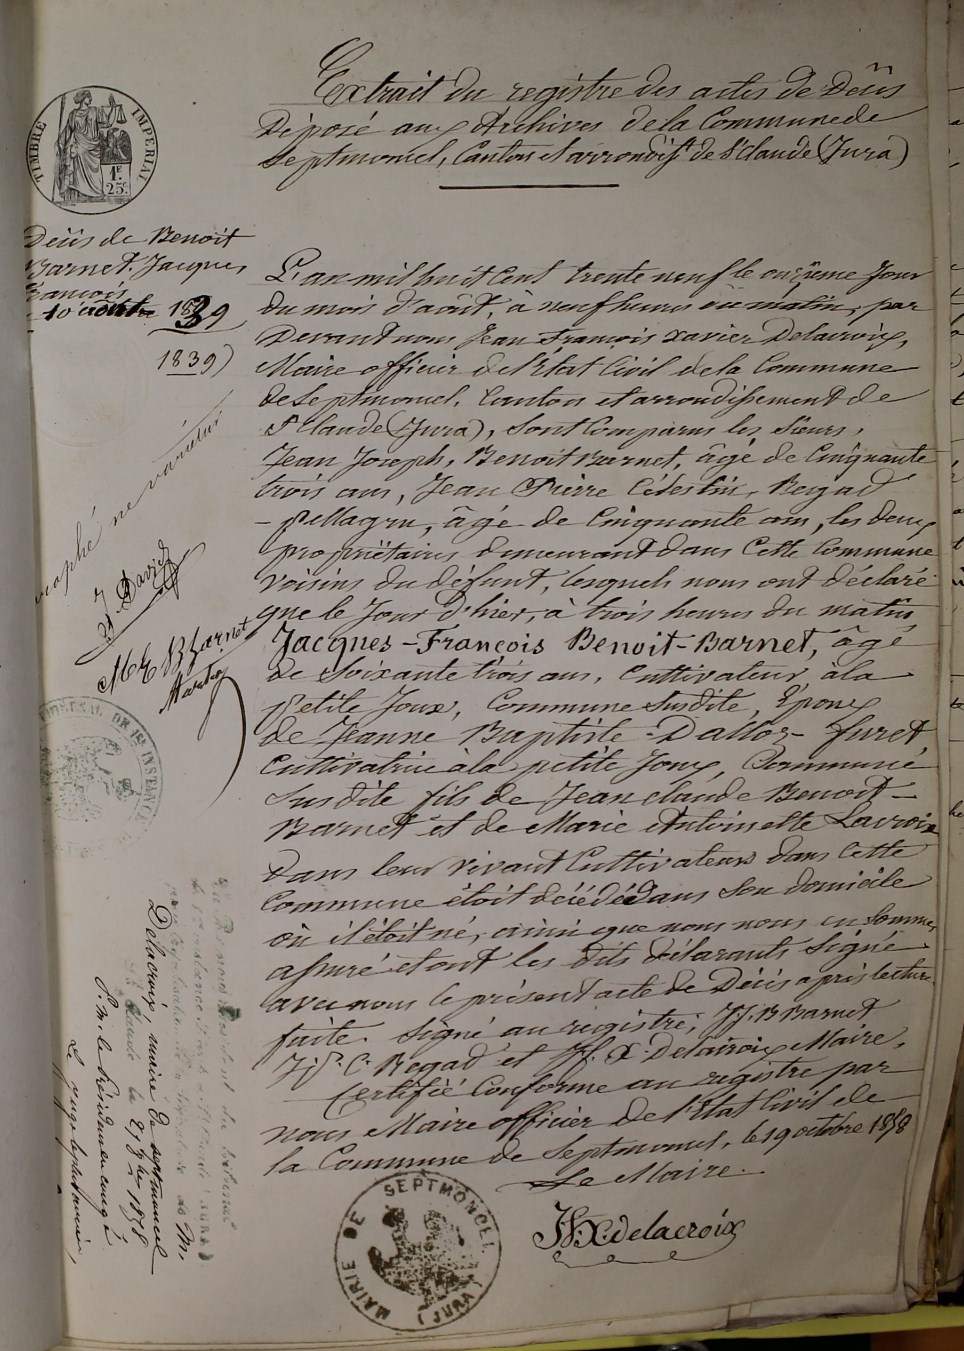 Extrait du registre des actes de Décès
Déposé aux Archives de la Commune de
Septmoncel, Canton et arrondist de St Claude (Jura)
TIMBRE IMPERIAL
1F.
25c.
Décès de Benoit
Barnet. Jacques
François
10 août 1839
1839)
L'an mil huit cent trente neuf le onzième Jour
du mois d'août, à neuf heures du matin, par
Devant nous Jean François Xavier Delacroix,
Maire officier de l'état Civil de la Commune
de Septmoncel, Canton et arrondissement de
St Claude (Jura), sont Comparus les Sieurs,
Jean Joseph, Benoit Barnet, âgé de Cinquante
trois ans, Jean Pierre Célestin, Regad
- Pellagru, âgé de Cinquante ans, les deux
propriétaires demeurant dans Cette Commune
voisins du défunt, lesquels nous ont déclaré
que le Jour d'hier, à trois heures du matin
Jacques-François Benoit-Barnet, âgé
de Soixante trois ans, Cultivateur, à la
petite Joux, Commune susdite, Époux
de Jeanne Baptiste Dalloz-furet
Cultivatrice à la petite Joux, Commune
susdite fils de Jean claude Benoit-
Barnet et de Marie Antoinette Lacroix
Dans leur vivant Cultivateurs dans Cette
Commune étoit décédé dans son domicile
où il étoit né, ainsi que nous nous en sommes
assuré et ont les dits déclarants signé
avec nous le présent acte de Décès après lecture
faite. Signé au registre; JJ. B Barnet
J. P. C. Regad et JF. X. Delacroix Maire,
Certifié Conforme au registre par
nous Maire officier de l'Etat Civil de
la Commune de Septmoncel, le 19 octobre 1858
Le Maire.
JFX. delacroix
MAIRIE DE SEPTMONCEL
(JURA)
ne varietur
J. David
Barnet
DE 1re INSTANCE
Delacroix, maire de septmoncel
St Claude le
P. m. le Président en congé
Le juge